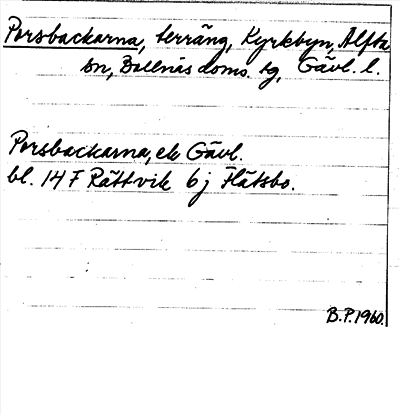 Porsbackarna, terräng, Kyrkbyn, Alfta
sn, Bollnäs doms. tg, Gävl. l.
Porsbackarna, ek Gävl.
bl. 14 F Rättvik 6 j Flätsbo.
B.P. 1960.